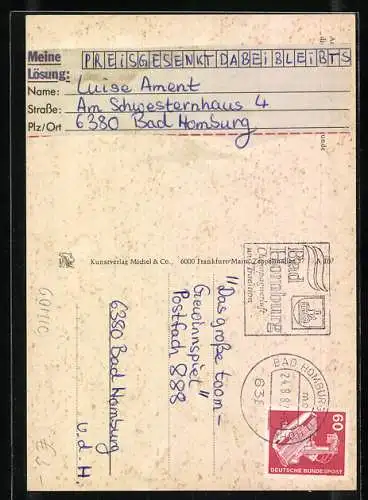 Meine
Lösung:
PREISGESENKTDABEIBLEIBTS
Name: Luise Ament
Straße: Am Schwesternhaus 4
Plz/Ort 6380 Bad Homburg
Kunstverlag Michel & Co., 6000 Frankfurt/Main
"Das große toom-
Gewinnspiel"
Postfach 888
6380 Bad Homburg
v. d. H.
Bad
Homburg
Champagnerluft
und Tradition
BAD HOMBURG
24.8.8
638
60
DEUTSCHE BUNDESPOST